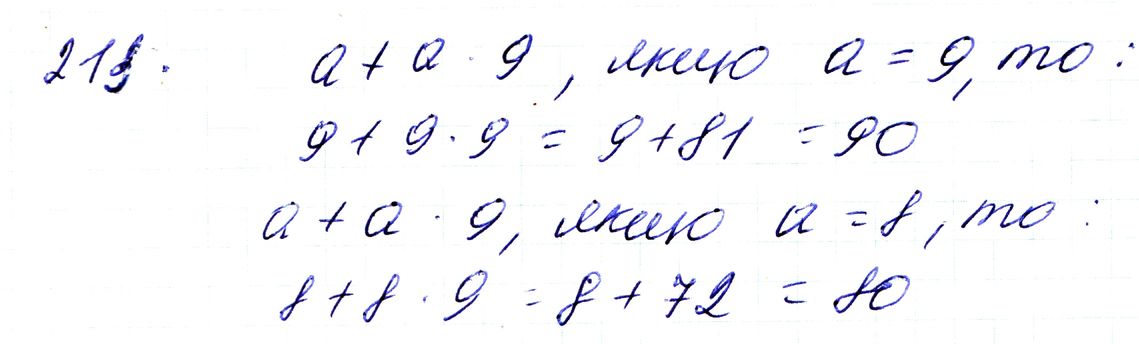 213. a + a · 9, якщо a = 9, то:
9 + 9 · 9 = 9 + 81 = 90
a + a · 9, якщо a = 8, то:
8 + 8 · 9 = 8 + 72 = 80